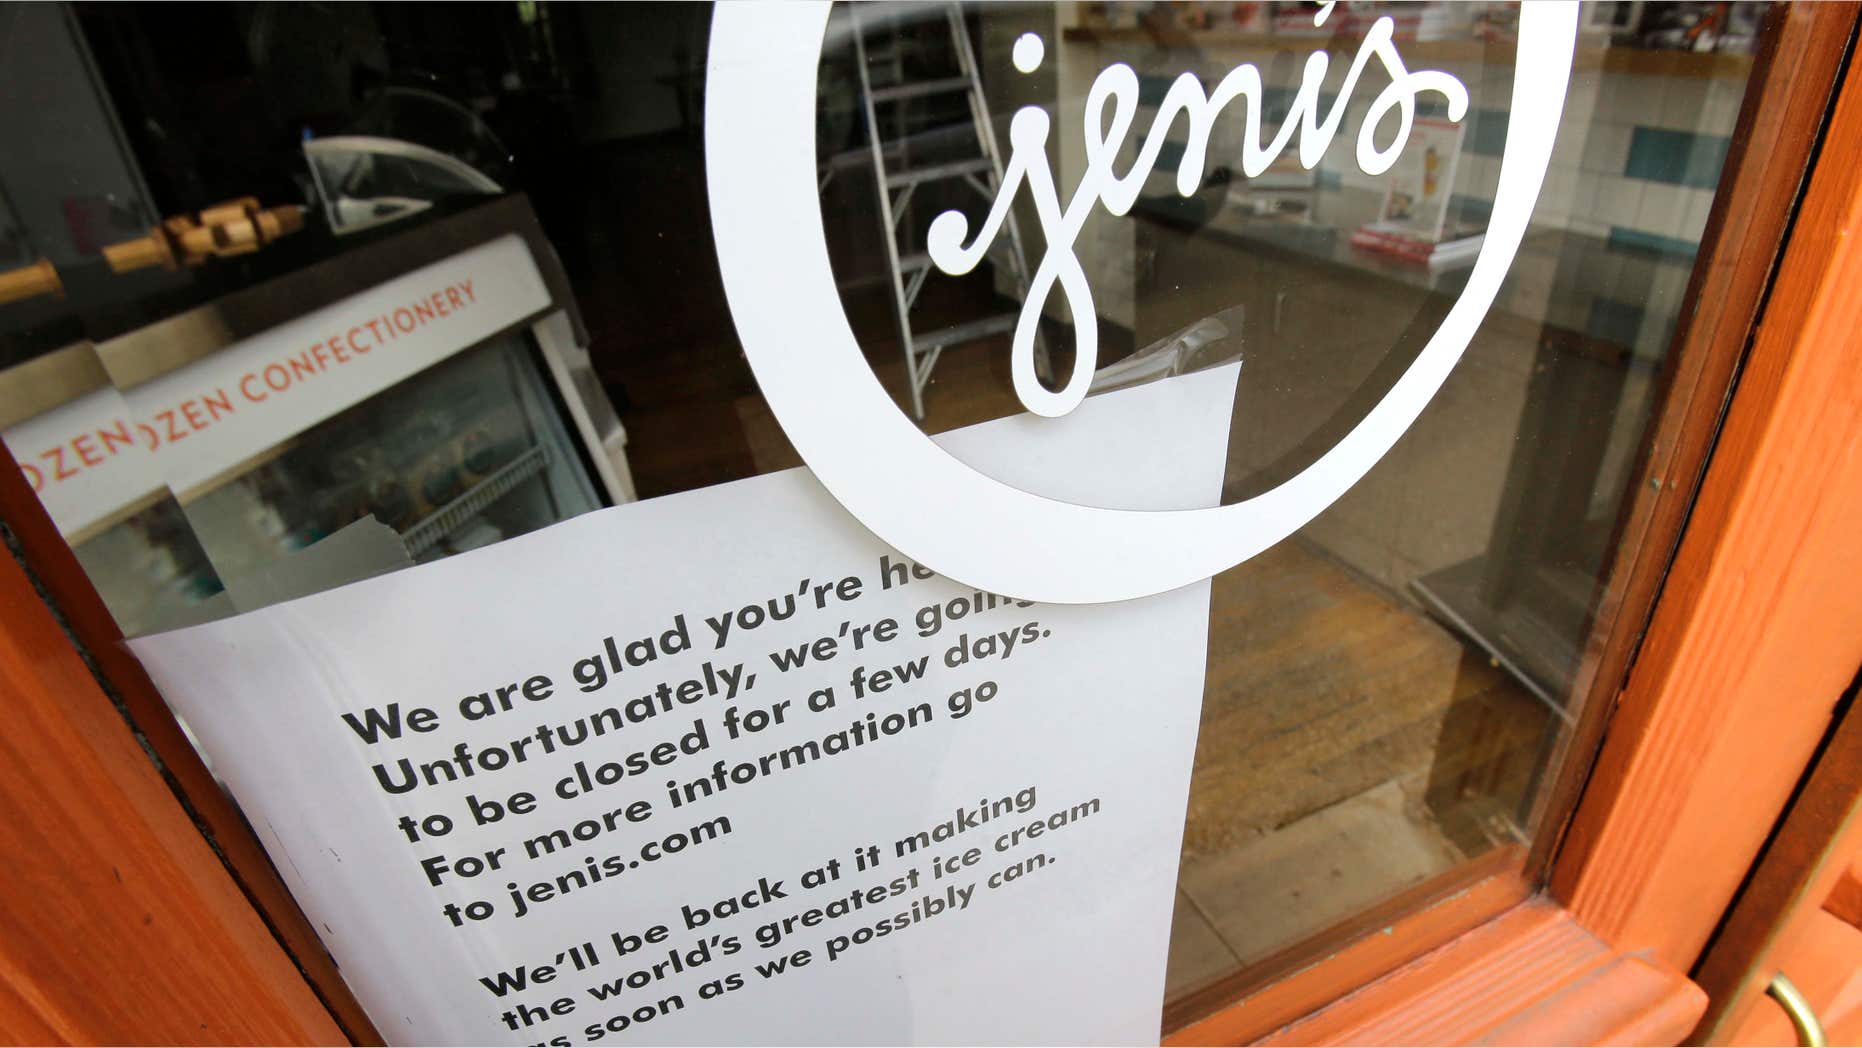 jeni's
OZEN
OZEN CONFECTIONERY
We are glad you're
Unfortunately, we're going
to be closed for a few days.
For more information go
to jenis.com
We'll be back at it making
the world's greatest ice cream
as soon as we possibly can.